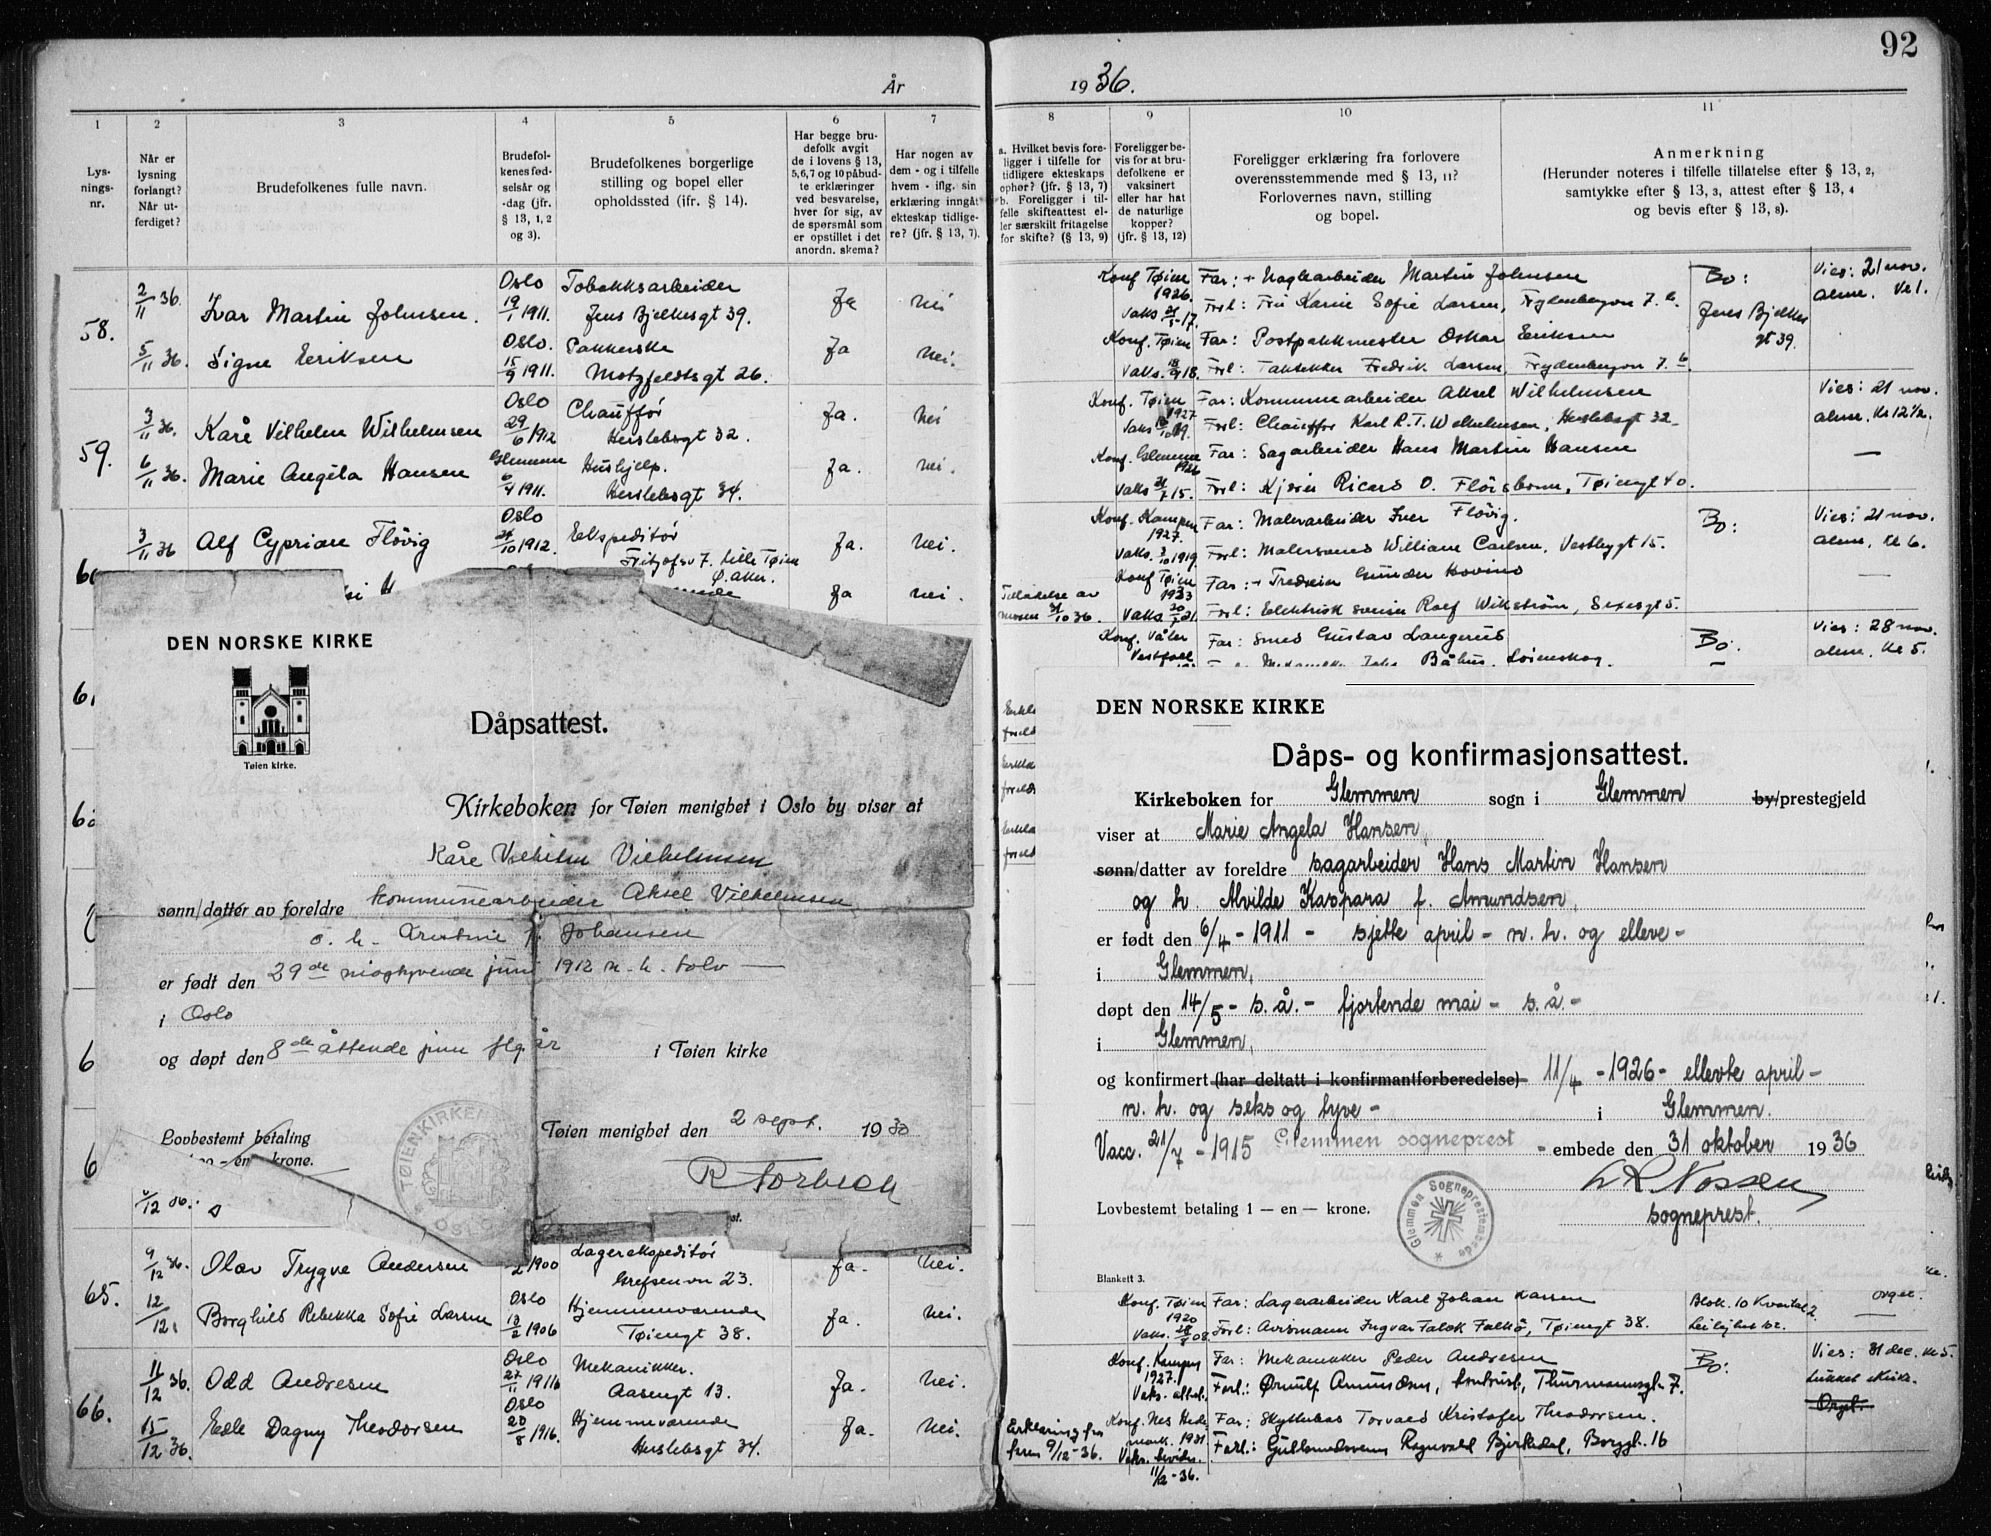 92
År
1936.
1
2
3
4
5
6
7
8
9
10
11
Lys-
nings-
nr.
Når er
lysning
forlangt?
Når ut-
ferdiget?
Brudefolkenes fulle navn.
Brudefol-
kenes fød-
selsår og
-dag (jfr.
§ 13, 1, 2
og 3).
Brudefolkenes borgerlige
stilling og bopel eller
opholdssted (ifr. § 14).
Har begge bru-
defolk avgit
de i lovens § 13,
5, 6, 7 og 10 påbud-
te erklæringer
ved besvarelse,
hver for sig, av
de spørsmål som
er opstillet i det
anordn. skema?
Har nogen av
dem - og i tilfelle
hvem - iflg. sin
erklæring inngått
ekteskap tidlige-
re? (jfr. § 13, 7).
a. Hvilket bevis fore-
ligger i tilfelle for
tidligere ekteskaps
ophør? (jfr. § 13, 7)
b. Foreligger i til-
felle skifteattest el-
ler særskilt fritagelse
for skifte? (§ 13, 9)
Foreligger be-
vis for at bru-
defolkene er
vaksinert
eller har hat
de naturlige
kopper?
(jfr. § 13, 12)
Foreligger erklæring fra forlovere
overensstemmende med § 13, 11?
Forlovernes navn, stilling
og bopel.
Anmerkning
(Herunder noteres i tilfelle tillatelse efter § 13, 2,
samtykke efter § 13, 3, attest efter § 13, 4
og bevis efter § 13, 8).
58.
2/11 36. Ivar Martin Johnsen. Oslo 19/1 1911. Tobakksarbeider Jens Bjelkesgt 39. Ja nei
Konf. Tøien 1926. Far: + Naglearbeider Martin Johnsen Bo: Vies: 21 nov.
Forl: Fru Karin Sofie Larsen, Frydenbergvn 7. Jens Bjelkes gt 39.
5/11 36. Signe Eriksen Oslo. 15/9 1911. Pakkerske Motzfeldtsgt 26. Ja Nei.
Konf. Tøien Far: Postpakkmester Oskar Eriksen
Vaks. 18. Forl: Fredrik Larsen, Frydenbergvn 7. b
59.
3/11 36. Kåre Vilhelm Wilhelmsen Oslo 29/6 1912 Chauffør Herslebsgt 32. Ja. nei
Konf. Tøien 1927 Far: Kommunearbeider Aksel Wilhelmsen Vies: 21 nov.
Forl: Chauffør Karl R. T. Wilhelmsen, Herslebsgt 32
6/11 36. Marie Angela Hansen Glemmen 6/4 1911. Hushjelp. Herslebsgt 34. Ja. nei.
Konf. Glemmen 1926 Far: Sagarbeider Hans Martin Hansen —
Vaks 21/7 15. Forl: Ricard O. , Tøiengt 40.
3/11 36 Alf Cyprian Fløvig Oslo 10 1912. Ekspeditør Fritjofsv 7. Lille Tøien Ø. Aker. Ja. Nei.
Konf. Kampen 1927. Far: Malerarbeider Iver Fløvig. Bo: Vies: 21 nov.
Vaks. 1919 Forl: Malersvend William Carlsen, Vestbygt 15. alm. kl 6.
Ja nei.
Tillatelse av 10 36. Konf Tøien 1933 Far: + Gunder Hovind —
Forl: Elektrisk svenn Rolf Wikstrøm, Sexesgt 5.
Konf. Våler Vestfold Far: Smed Gustav Langerud Bo. Vies: 28 nov.
Båhus. Lørenskog. alm. kl 5.
DEN NORSKE KIRKE
Tøien kirke.
Dåpsattest.
Kirkeboken for Tøien menighet i Oslo by viser at
Kåre Vilhelm Vilhelmsen
sønn/datter av foreldre kommunearbeider Aksel Vilhelmsen
o. h. Kristine f. Johansen
er født den 29de niogtyvende juni 1912 n. h. tolv —
i Oslo
og døpt den 8de åttende juni flg år i Tøien kirke
Lovbestemt betaling
- en - krone.
TØIENKIRKEN OSLO
Tøien menighet den 2 sept. 1930
DEN NORSKE KIRKE
Dåps- og konfirmasjonsattest.
Kirkeboken for Glemmen sogn i Glemmen by/prestegjeld
viser at Marie Angela Hansen,
sønn/datter av foreldre sagarbeider Hans Martin Hansen
og h. Alvilde Kaspara f. Amundsen,
er født den 6/4 - 1911 - sjette april - n. h. og elleve -
i Glemmen,
døpt den 14/5 - s. å. - fjortende mai - s. å. -
i Glemmen,
og konfirmert (har deltatt i konfirmantforberedelse) 11/4 - 1926 - ellevte april -
n. h. og seks og tyve - i Glemmen.
Vacc. 21/7 - 1915 Glemmen sogneprest - embede den 31 oktober 1936
Nossen
sogneprest.
Lovbestemt betaling 1 — en — krone.
Glemmen Sogneprestembede
Blankett 3.
65.
9/12 36. Olav Trygve Andersen 2 1900 Lagerekspeditør Grefsenvn 23. Ja. Nei.
12/12 Borghild Rebekka Sofie Larsen Oslo 13/2 1906 Hjemmeværende Tøiengt 38. Ja. Nei.
Konf. Tøien 1920 Far: Lagerarbeider Karl Johan Larsen Blok. 10 Kvartal 2. orgel.
Forl: Avismann Ingvar Falck , Tøiengt 38.
66.
11/12 36. Odd Andresen Oslo 27/11 1911 Mekanikker. Aasengt 13. Ja. Nei.
Konf. Kampen 1927. Far: Mekanikker Peder Andresen Bo: Vies: 31 dec. kl 5.
Vaks. attest. Forl.: Ørnulf Amundsen, , Thurmannsgt. 7. Lukket kirke.
Orgel.
15/12 36. Edle Dagny Theodorsen Oslo 20/8 1916. Hjemmeværende Herslebsgt 34. Ja. Nei.
Erklæring fra 9/12-36. Konf. Nes Hedemark. 1931 Far: Torvald Kristofer Theodorsen.
11/2-36. Forl.: Gullsmedsvenn Ragnvald Bjerkedal, Borggt. 16